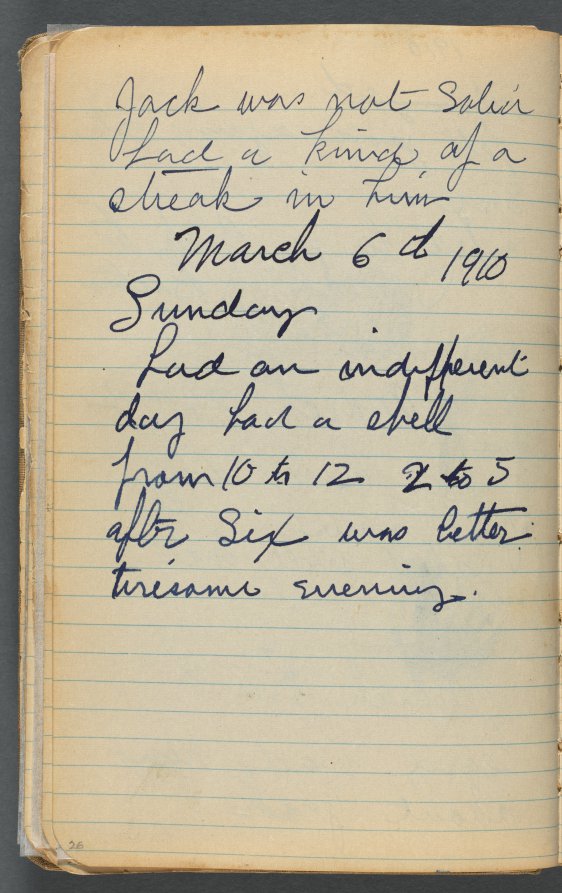 Jack was not Sober
had a kind of a
streak in him
March 6 d 1910
Sunday
had an indifferent
day had a spell
from 10 to 12 2 to 5
after Six was better
tiresome evening.
26